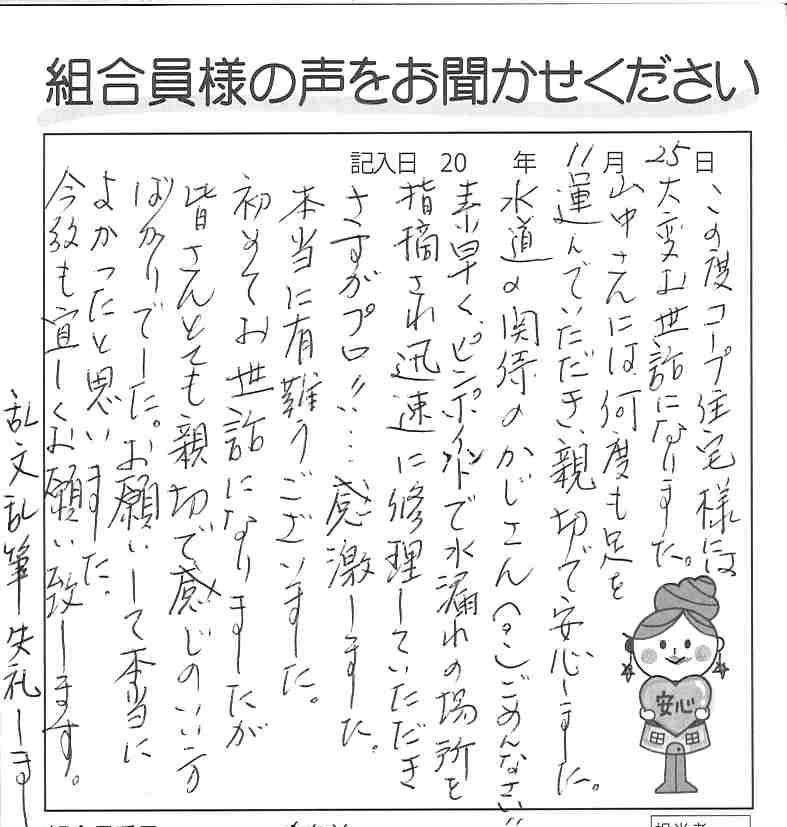 組合員様の声をお聞かせください
記入日 20 年 11 月 25 日
この度コープ住宅様には
大変お世話になりました。
山中さんには何度も足を
運んでいただき、親切で安心しました。
水道の関係のかじさん
ごめんなさい!!
素早くピンポイントで水漏れの場所を
指摘され迅速に修理していただき
さすがプロ!!…感激しました。
本当に有難うございました。
初めてお世話になりましたが
皆さんとても親切で感じのいい方
ばかりでした。お願いして本当に
よかったと思いました。
今後も宜しくお願い致します。
乱文乱筆失礼しまし
安心